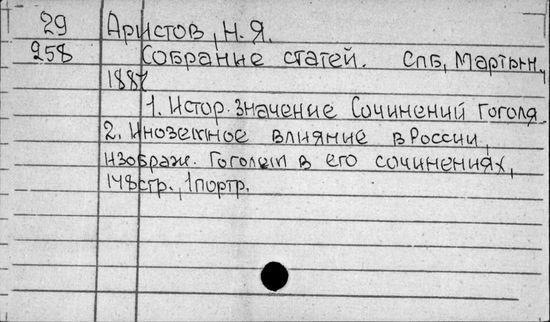 29 Аристов, Н.Я.
258 Собрание статей. СПб, Мартын.,
1887
1. Истор. значение Сочинений Гоголя
2. Иноземное влияние в России,
изображ. Гоголем в его сочинениях,
148 стр., 1 портр.